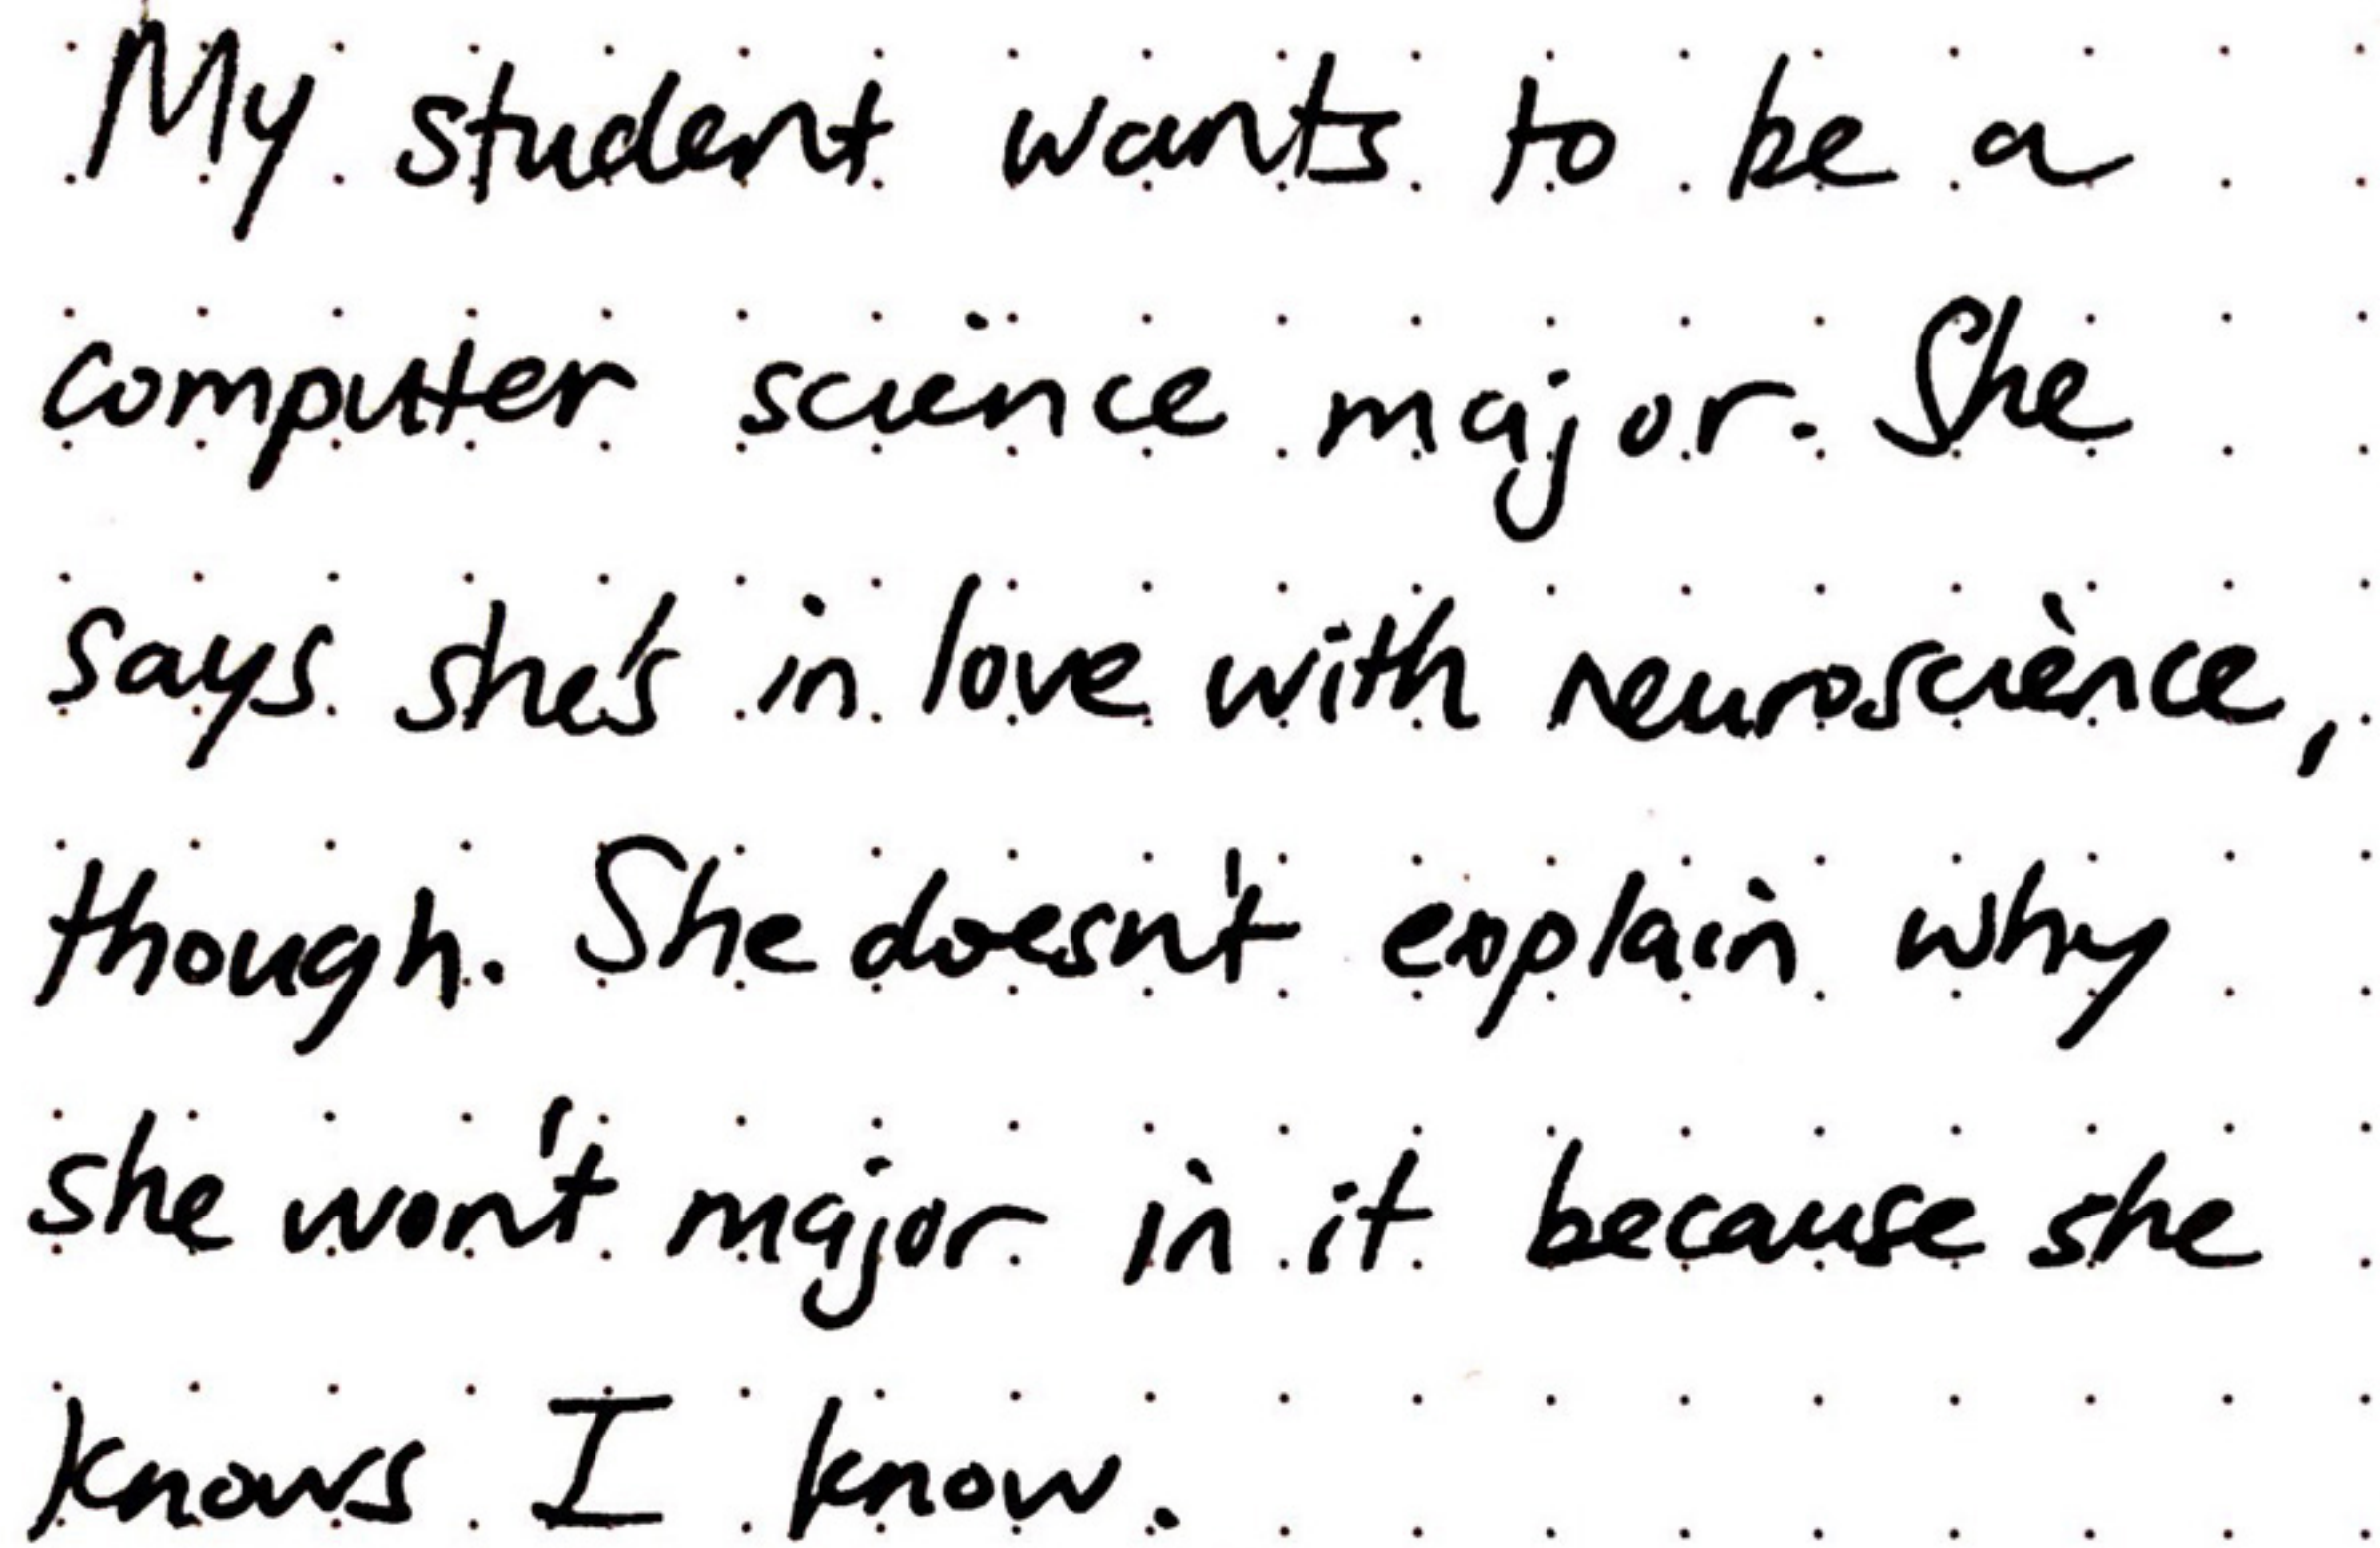 My student wants to be a
computer science major. She
says she's in love with neuroscience,
though. She doesn't explain why
she won't major in it because she
knows I know.